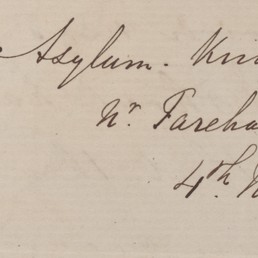 Asylum. Kn
Nr. Fareha
4th N